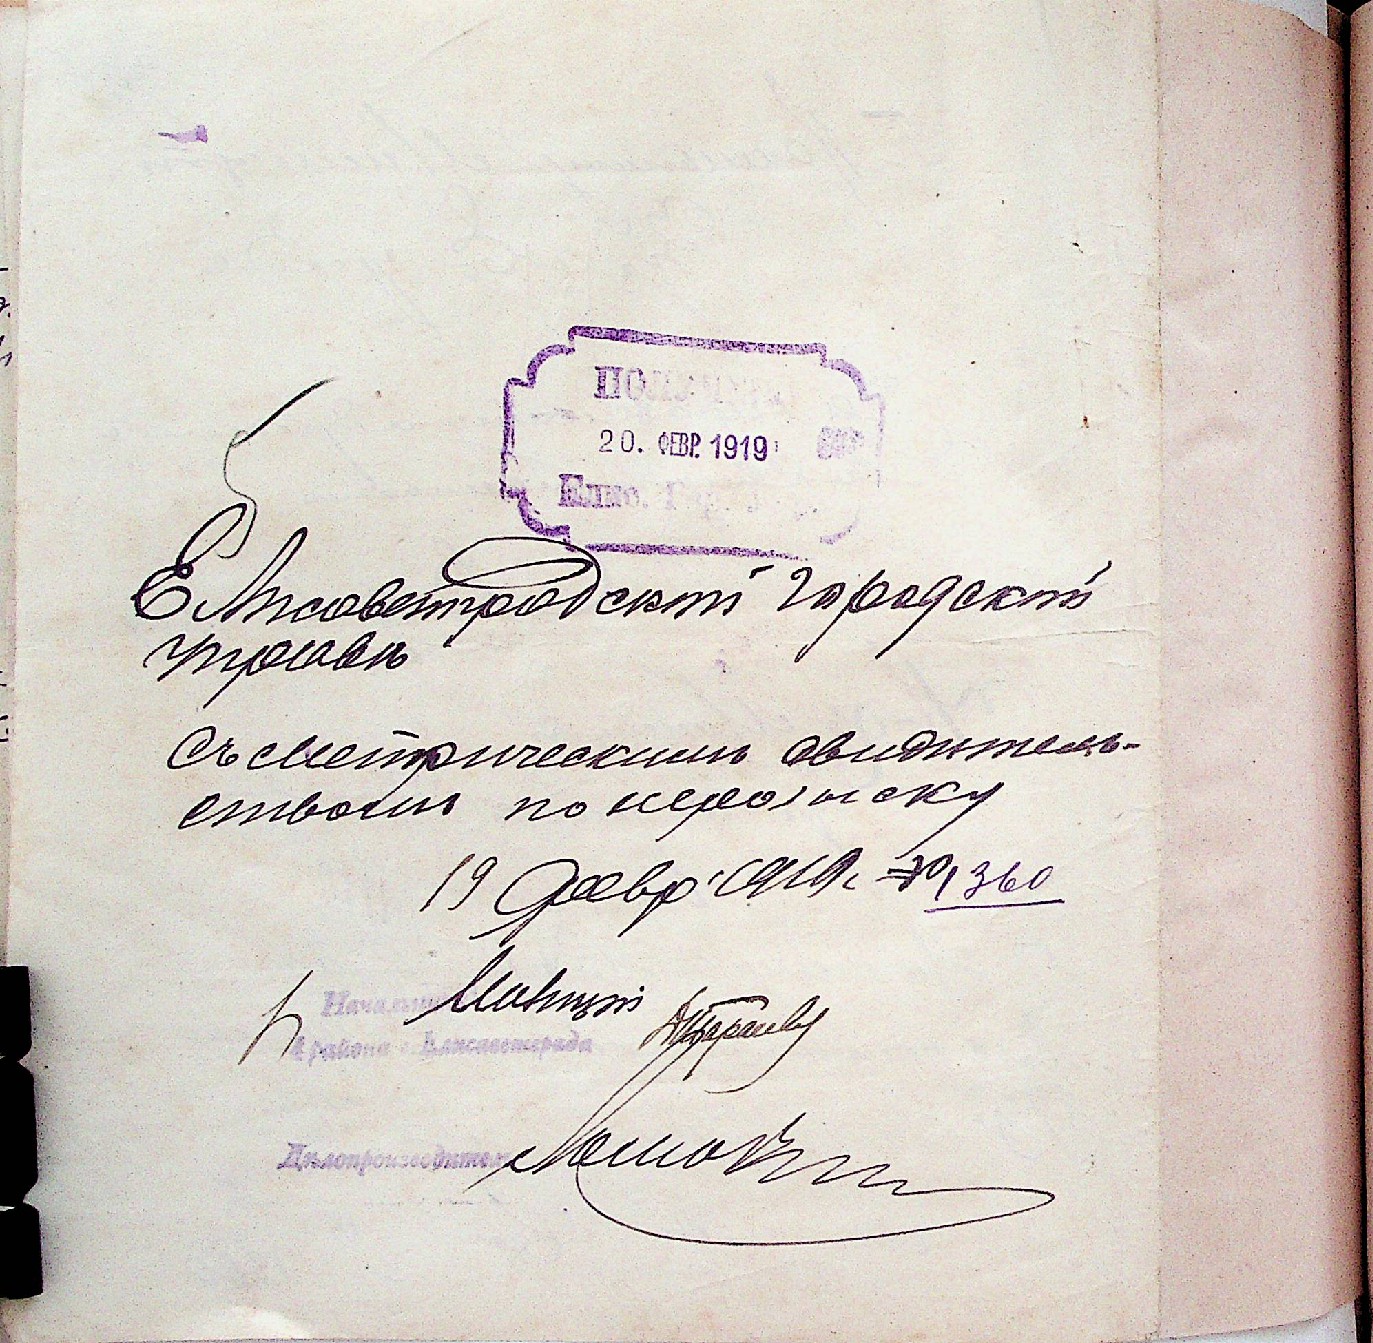 ПОЛУЧЕНО
20. ФЕВР. 1919
Елис. Гор.
Елисаветградской городской
управѣ
Съ метрическимъ свидѣтель-
ствомъ по нерозыску
19 февр. 1919 г. № 1360
Начальникъ
района г. Елисаветграда
Дѣлопроизводитель